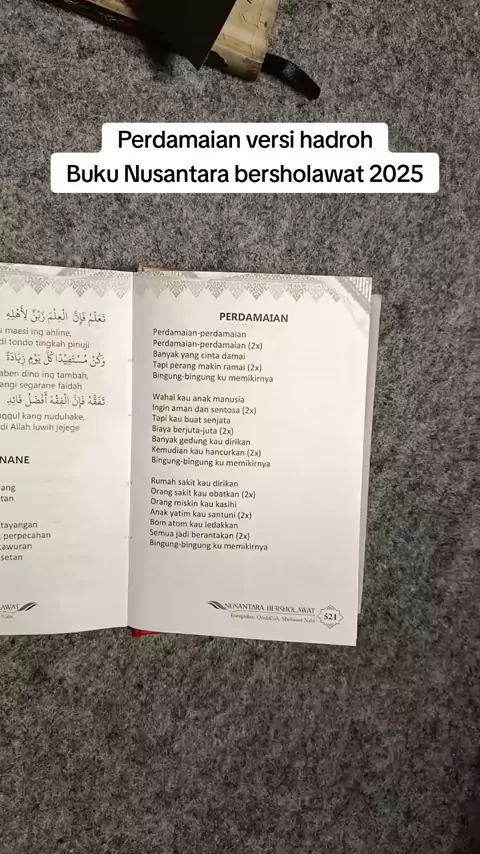 Perdamaian versi hadroh
Buku Nusantara bersholawat 2025
تَعَلَّمْ فَإِنَّ الْعِلْمَ زَيْنٌ لِأَهْلِهِ
maesi ing ahline,
di tondo tingkah pinuji
وَكُنْ مُسْتَفِيْدًا كُلَّ يَوْمٍ زِيَادَةً
aben dino ing tambah,
angi segarane faidah
تَفَقَّهْ فَإِنَّ الْفِقْهَ أَفْضَلُ قَائِدٍ
nggul kang nuduhake,
di Allah luwih jejege
NANE
ang
tan
tayangan
perpecahan
tawuran
setan
AWAT
Nabi
PERDAMAIAN
Perdamaian-perdamaian
Perdamaian-perdamaian (2x)
Banyak yang cinta damai
Tapi perang makin ramai (2x)
Bingung-bingung ku memikirnya
Wahai kau anak manusia
Ingin aman dan sentosa (2x)
Tapi kau buat senjata
Biaya berjuta-juta (2x)
Banyak gedung kau dirikan
Kemudian kau hancurkan (2x)
Bingung-bingung ku memikirnya
Rumah sakit kau dirikan
Orang sakit kau obatkan (2x)
Orang miskin kau kasihi
Anak yatim kau santuni (2x)
Bom atom kau ledakkan
Semua jadi berantakan (2x)
Bingung-bingung ku memikirnya
NUSANTARA BERSHOLAWAT
Kumpulan Qosidah, Sholawat Nabi
521